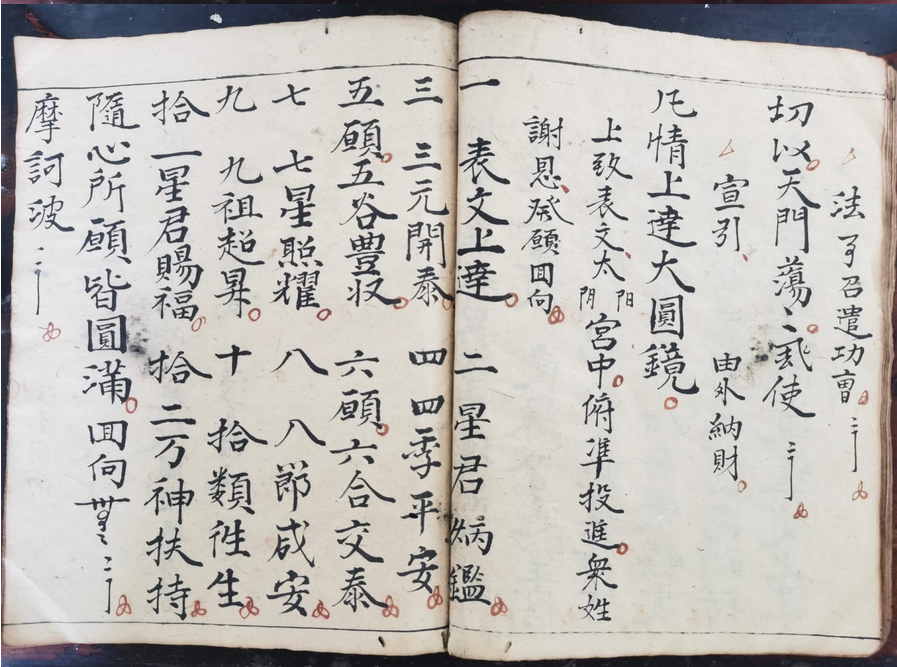 法事召遣功曹
切以天門蕩〻
宣引、由外納財
凡情上達大圓鏡
上致表文、太陽陰宮中俯準投進衆姓
謝恩、發願回向
一 表文上達 二 星君炳鑑
三 三元開泰 四 四季平安
五願五谷豊收 六願六合交泰
七 七星照耀 八 八節咸安
九 九祖超昇 十 拾類徃生
拾一星君賜福 拾二万神扶持
隨心所願皆圓滿回向
摩訶波